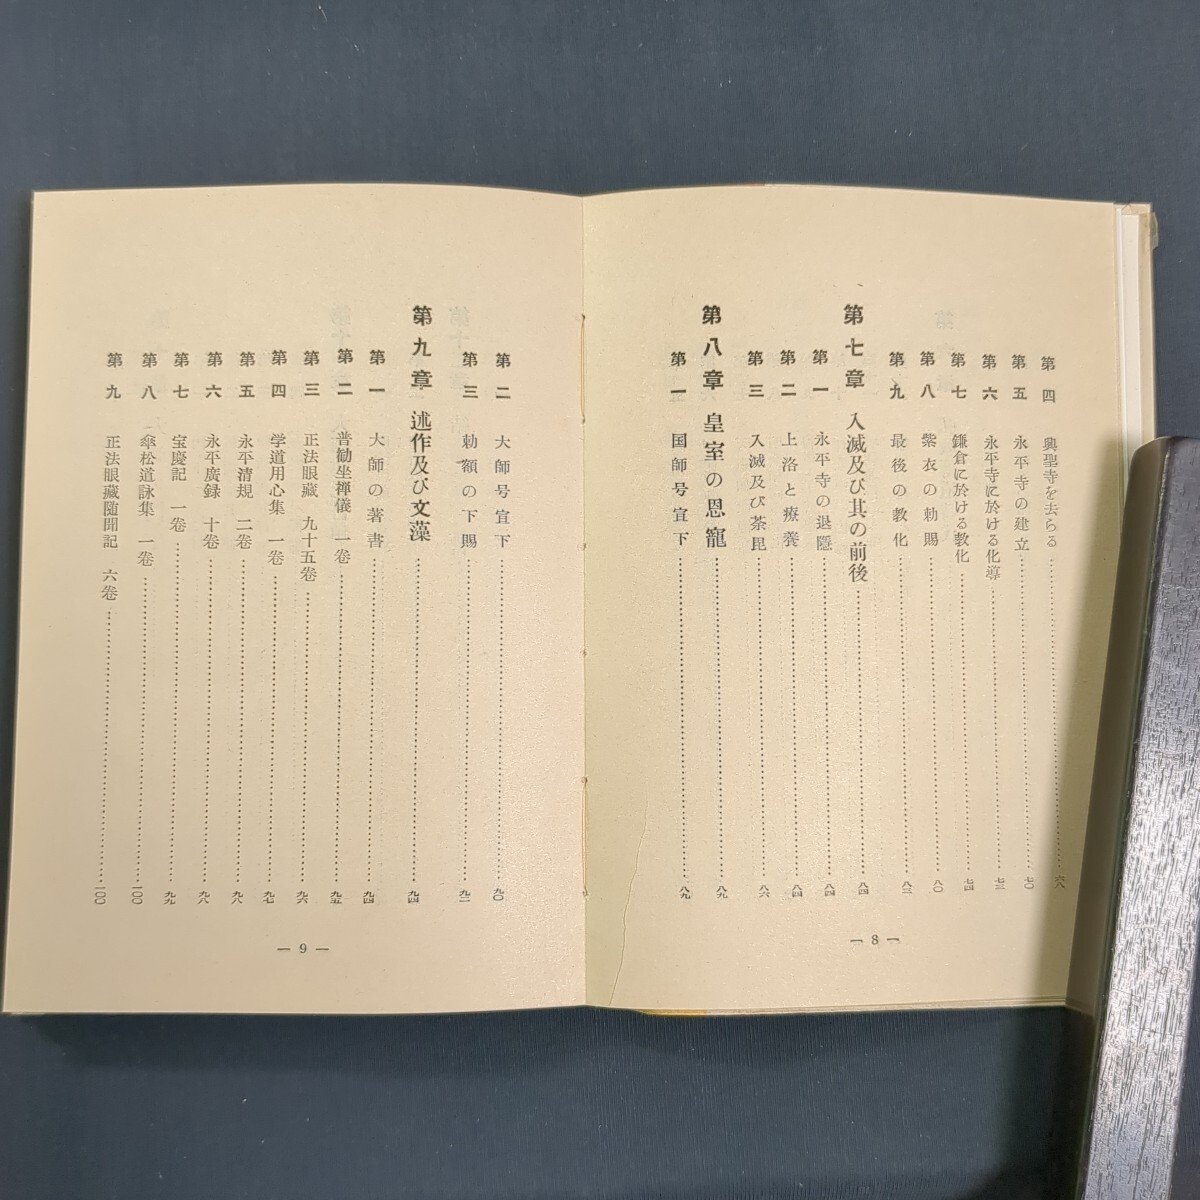 第四 興聖寺を去らる……六八
第五 永平寺の建立……七〇
第六 永平寺に於ける化導……七三
第七 鎌倉に於ける教化……七四
第八 紫衣の勅賜……八〇
第九 最後の教化……八三
第七章 入滅及び其の前後……八四
第一 永平寺の退隠……八四
第二 上洛と療養……八四
第三 入滅及び荼毘……八六
第八章 皇室の恩寵……八九
第一 国師号宣下……八九
— 8 —
第二 大師号宣下……九〇
第三 勅額の下賜……九二
第九章 述作及び文藻……九四
第一 大師の著書……九四
第二 普勧坐禅儀 一巻……九五
第三 正法眼蔵 九十五巻……九六
第四 学道用心集 一巻……九七
第五 永平清規 二巻……九八
第六 永平廣録 十巻……九八
第七 宝慶記 一巻……九九
第八 傘松道詠集 一巻……一〇〇
第九 正法眼蔵随聞記 六巻……一〇〇
— 9 —